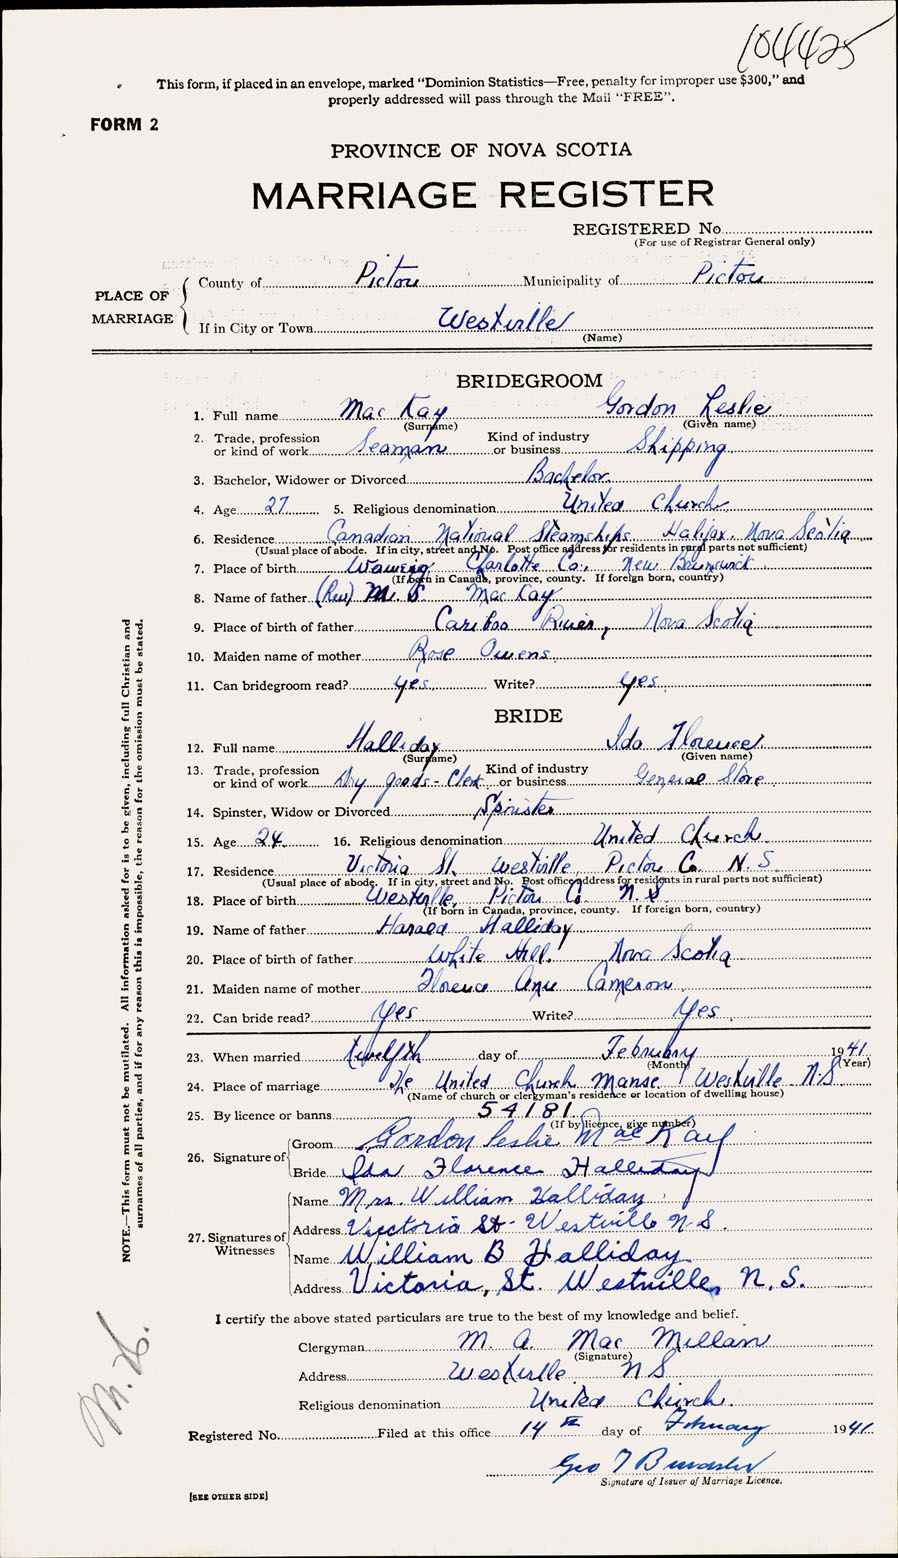 104425
This form, if placed in an envelope, marked "Dominion Statistics—Free, penalty for improper use $300," and
properly addressed will pass through the Mail "FREE".
FORM 2
PROVINCE OF NOVA SCOTIA
MARRIAGE REGISTER
REGISTERED No
(For use of Registrar General only)
PLACE OF MARRIAGE
County of Pictou Municipality of Pictou
If in City or Town Westville
(Name)
BRIDEGROOM
1. Full name Mac Kay Gordon Leslie
(Surname) (Given name)
2. Trade, profession or kind of work Seaman Kind of industry or business Shipping
3. Bachelor, Widower or Divorced Bachelor
4. Age 27 5. Religious denomination United Church
6. Residence Canadian National Steamships Halifax, Nova Scotia
(Usual place of abode. If in city, street and No. Post office address for residents in rural parts not sufficient)
7. Place of birth Charlotte Co., New Brunswick
(If born in Canada, province, county. If foreign born, country)
8. Name of father (Rev) M. S Mac Kay
9. Place of birth of father Cariboo River, Nova Scotia
10. Maiden name of mother Rose Owens
11. Can bridegroom read? yes Write? yes
BRIDE
12. Full name Halliday Ida Florence
(Surname) (Given name)
13. Trade, profession or kind of work Dry goods - Clerk Kind of industry or business General Store
14. Spinster, Widow or Divorced Spinster
15. Age 24 16. Religious denomination United Church
17. Residence Victoria St. Westville, Pictou Co. N. S
(Usual place of abode. If in city, street and No. Post office address for residents in rural parts not sufficient)
18. Place of birth Westville, Pictou Co. N. S
(If born in Canada, province, county. If foreign born, country)
19. Name of father Harold Halliday
20. Place of birth of father White Hill, Nova Scotia
21. Maiden name of mother Florence Ann Cameron
22. Can bride read? Yes Write? Yes
23. When married twelfth day of February 1941
(Month) (Year)
24. Place of marriage The United Church Manse Westville N.S
(Name of church or clergyman's residence or location of dwelling house)
25. By licence or banns 54181
(If by licence, give number)
26. Signature of
Groom Gordon Leslie Mac Kay
Bride Ida Florence Halliday
27. Signatures of Witnesses
Name Mrs. William Halliday.
Address Victoria St - Westville N.S.
Name William B Halliday
Address Victoria, St. Westville, N.S.
I certify the above stated particulars are true to the best of my knowledge and belief.
Clergyman M. A. Mac Millan
(Signature)
Address Westville N S
Religious denomination United Church.
Registered No. Filed at this office 14th day of February 1941
Geo T
Signature of Issuer of Marriage Licence.
[SEE OTHER SIDE]
NOTE.—This form must not be mutilated. All information asked for is to be given, including full Christian and
surnames of all parties, and if for any reason this is impossible, the reason for the omission must be stated.